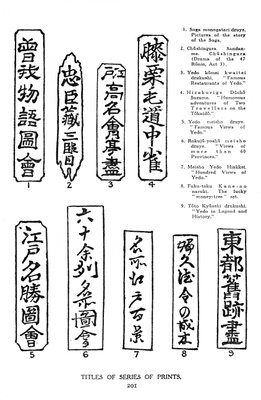 曾我物語圖會
1
忠臣藏三段目
2
江戸高名會亭盡
3
膝栗毛道中雀
4
1. Soga monogatari dzuye.
"Pictures of the story
of the Soga.
2. Chūshingura Sandan-
me. Chūshingura
(Drama of the 47
Rōnin, Act 3).
3. Yedo kōmei kwaitei
dzukushi. "Famous
Restaurants of Yedo."
4. Hizakurige Dōchū
Suzume. "Humorous
adventures of Two
Travellers on the
Tōkaidō."
5. Yedo meisho dzuye.
"Famous Views of
Yedo."
6. Rokujū-yoshū meisho
dzuye. "Views of
more than 60
Provinces."
7. Meisho Yedo Hiakkei.
"Hundred Views of
Yedo."
8. Fuku-toku Kane-no
naruki. The lucky
"money-tree" set.
9. Tōto Kyūseki dzukushi.
"Yedo in Legend and
History."
江戸名勝圖會
5
六十余州名所圖會
6
名所江戸百景
7
福久徳金の成木
8
東都舊跡盡
9
TITLES OF SERIES OF PRINTS.
201